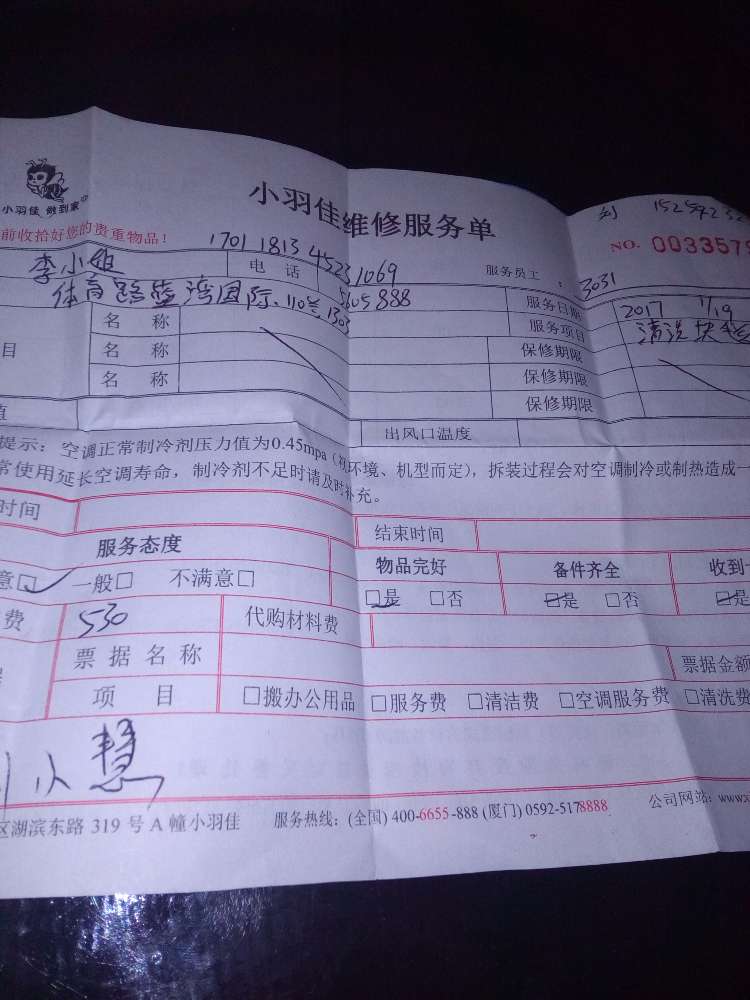 小羽佳 做到家
小羽佳维修服务单
前收拾好您的贵重物品!
NO. 003357
1701 1813
李小姐 电话 1069 服务员工: 3031
体育路蓝湾国际 服务日期 2017 1/19
名称 服务项目 清洗
目 名称 保修期限
名称 保修期限
保修期限
值 出风口温度
提示:空调正常制冷剂压力值为0.45mpa(环境、机型而定),拆装过程会对空调制冷或制热造成一
常使用延长空调寿命,制冷剂不足时请及时补充。
时间 结束时间
服务态度 物品完好 备件齐全 收到
意□ 一般□ 不满意□ □是 □否 □是 □否 □是
费 530 代购材料费
票据名称 票据金额
项目 □搬办公用品 □服务费 □清洁费 □空调服务费 □清洗费
小慧
区湖滨东路 319 号 A 幢小羽佳 服务热线:(全国) 400-6655-888 (厦门) 0592-5178888 公司网站: www.x